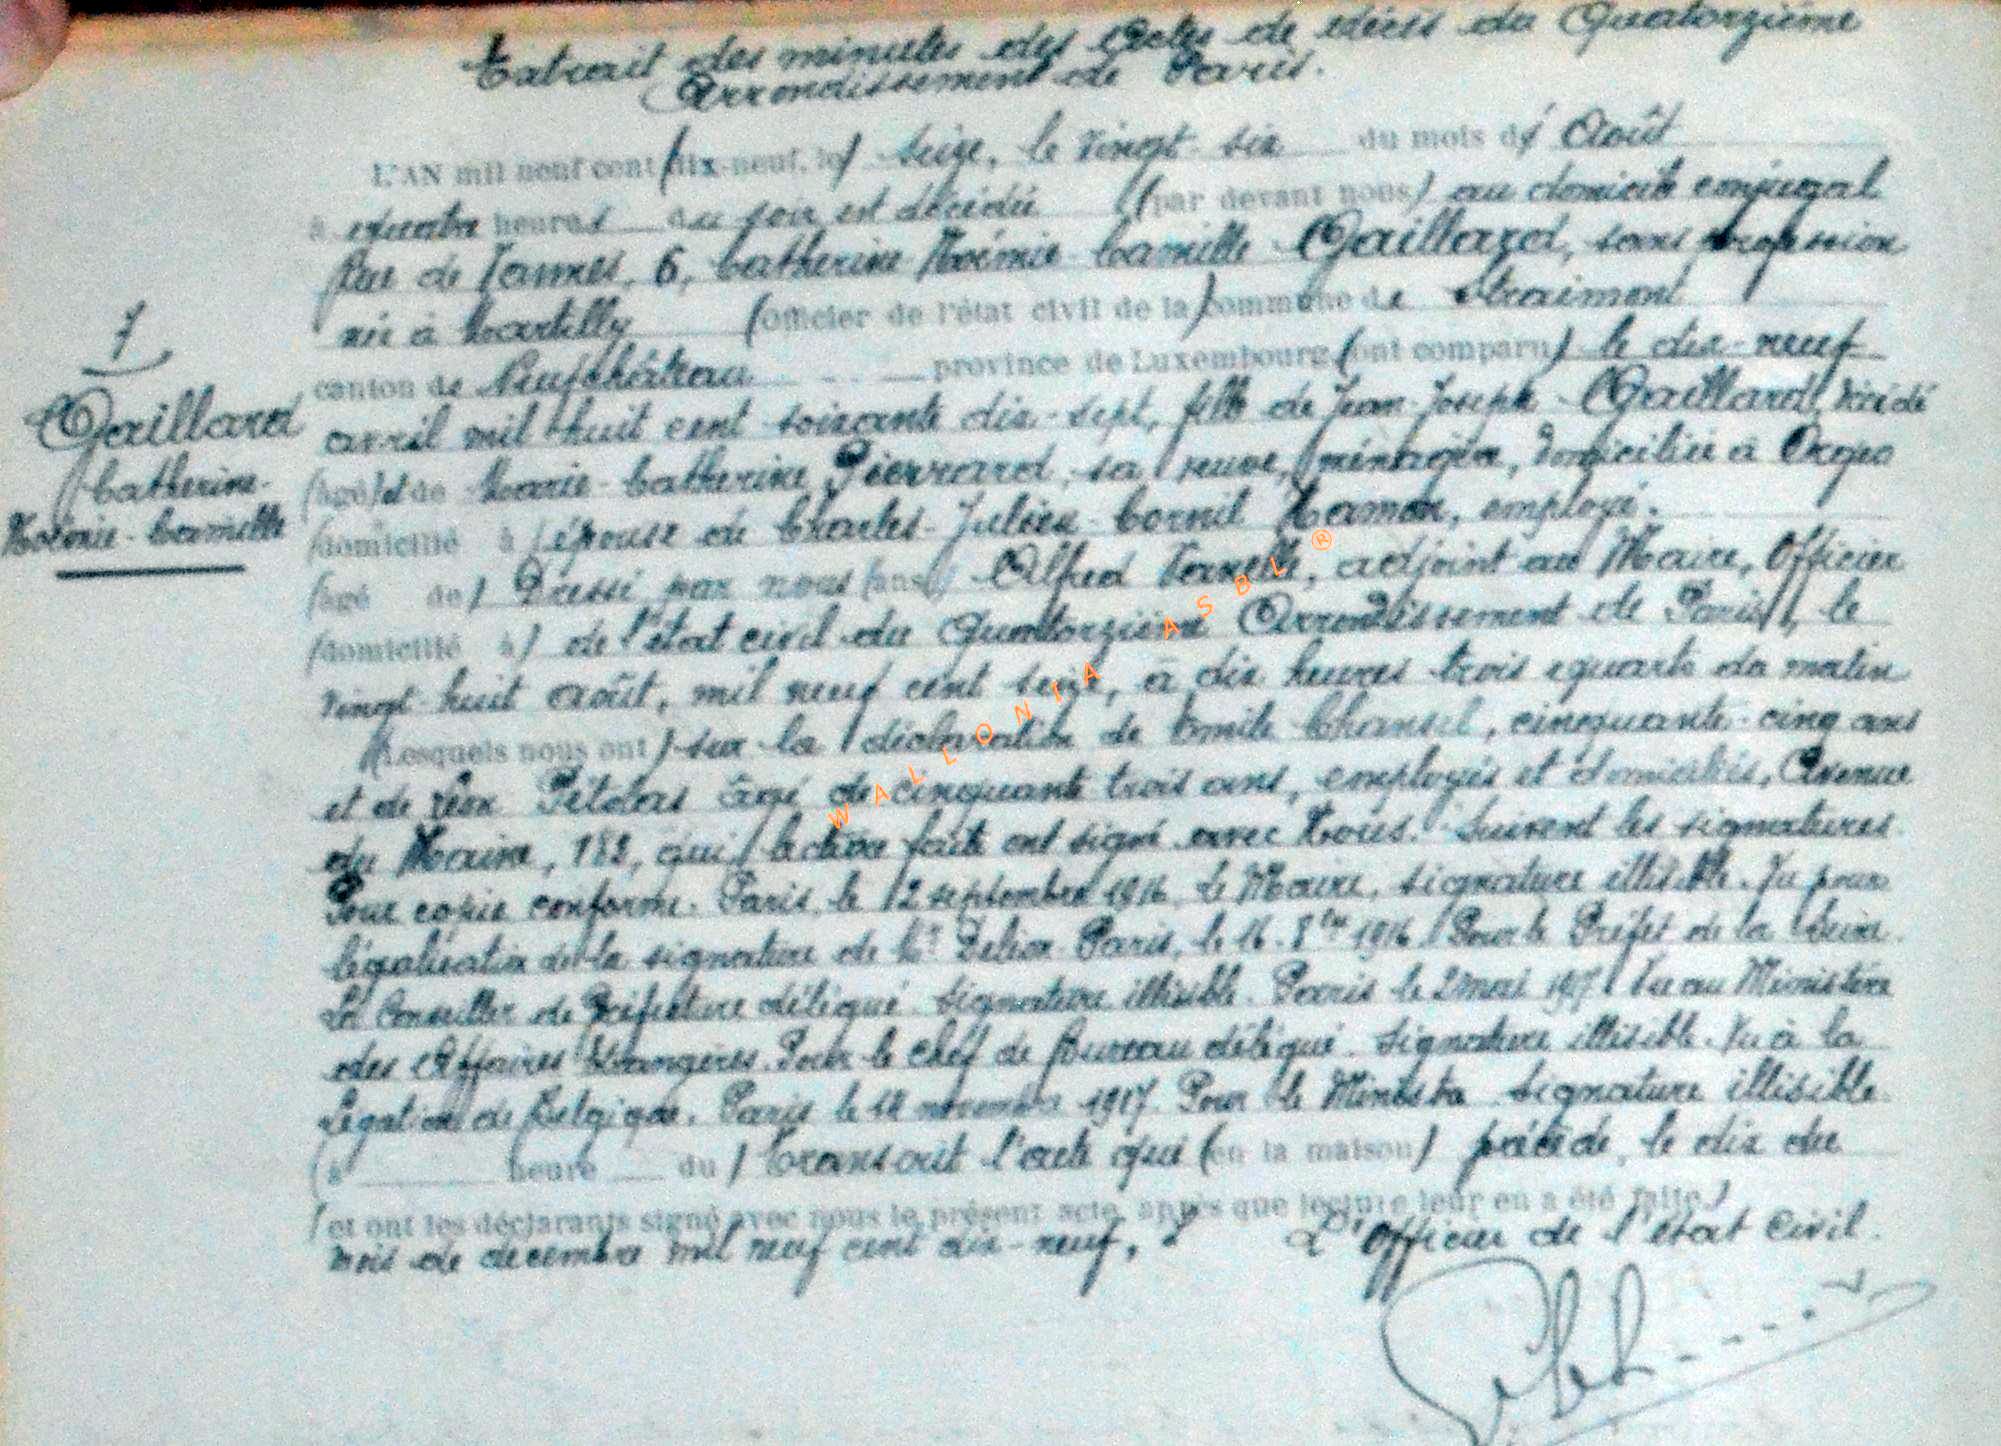 Extrait des minutes des Actes de décès du Quatorzième
Arrondissement de Paris.
L'AN mil neuf cent (dix-neuf, le) seize, le vingt-six du mois d' Août
à quatre heures du soir est décédée (par devant nous) au domicile conjugal
Rue de 6, Catherine Noémie Camille Gaillard, sans profession
née à Martilly (officier de l'état civil de la) commune de Straimont
canton de Neufchâteau province de Luxembourg (ont comparu) le dix-neuf
avril mil huit cent soixante dix-sept, fille de Jean-Joseph Gaillard, décédé
(âgé) et de Marie-Catherine Pierrard, sa veuve, ménagère, domiciliée à Orgeo
(domicilié à) épouse de Charles-Julien-Cornil Hamon, employé.
(âgé de) Dressé par nous (ans) Alfred adjoint au Maire, Officier
(domicilié à) de l'état civil du Quatorzième Arrondissement de Paris, le
vingt-huit août, mil neuf cent seize, à dix heures trois quarts du matin
(Lesquels nous ont) sur la déclaration de Emile Chansel, cinquante-cinq ans
et de Léon âgé de cinquante trois ans, employés et domiciliés, Avenue
du Maine, qui lecture faite ont signé avec Nous. Suivent les signatures.
Pour copie conforme. Paris, le 12 septembre 1916, le Maire, signature illisible. Vu pour
légalisation de la signature de Mr Paris, le 16. 8bre 1916. Pour le Préfet de la Seine.
Le Conseiller de Préfecture délégué. Signature illisible. Paris le 2 mai 1917 Vu au Ministère
des Affaires Etrangères. Pour le chef de Bureau délégué. Signature illisible. Vu à la
Légation de Belgique. Paris le 14 novembre 1917. Pour le Ministre Signature illisible.
(à heure du) Transcrit l'acte qui (en la maison) précède, le dix du
(et ont les déclarants signé avec nous le présent acte, après que lecture leur en a été faite.)
mois de décembre mil neuf cent dix-neuf. L'Officier de l'état Civil.
7
Gaillard
Catherine-
Noémie-Camille
WALLONIA ASBL ®